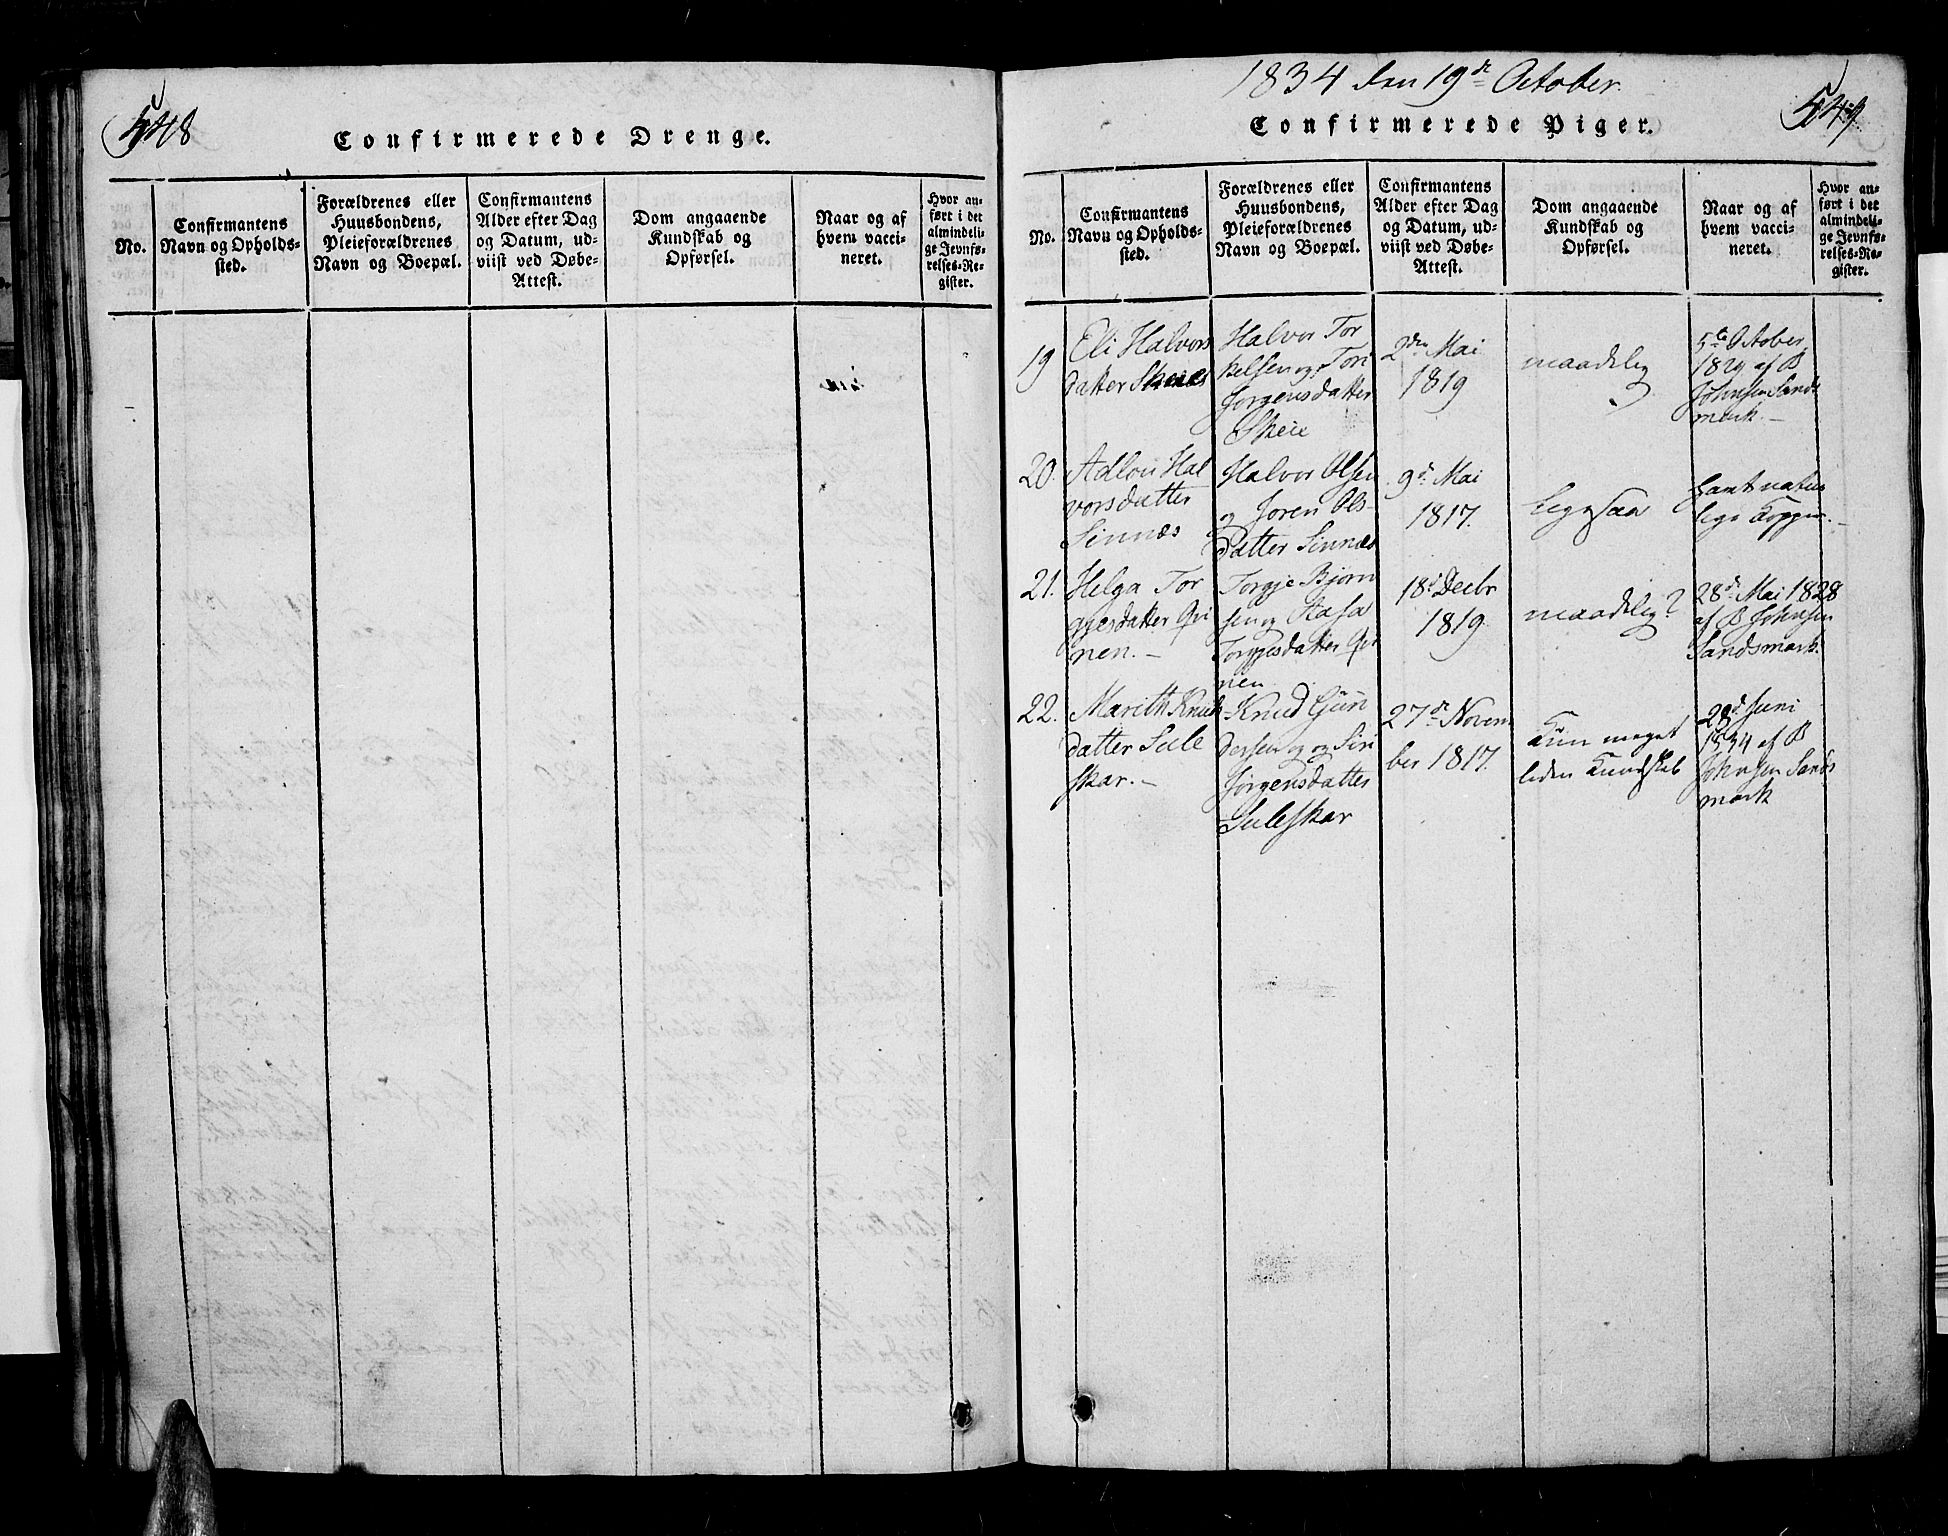 548
Confirmerede Drenge.
No.
Confirmantens
Navn og Opholds-
sted.
Forældrenes eller
Huusbondens,
Pleieforældrenes
Navn og Boepæl.
Confirmantens
Alder efter Dag
og Datum, ud-
viist ved Døbe-
Attest.
Dom angaaende
Kundskab og
Opførsel.
Naar og af
hvem vacci-
neret.
Hvor an-
ført i det
almindeli-
ge Jevnfø-
relses-Re-
gister.
1834 den 19de October.
549
Confirmerede Piger.
No.
Confirmantens
Navn og Opholds-
sted.
Forældrenes eller
Huusbondens,
Pleieforældrenes
Navn og Boepæl.
Confirmantens
Alder efter Dag
og Datum, ud-
viist ved Døbe-
Attest.
Dom angaaende
Kundskab og
Opførsel.
Naar og af
hvem vacci-
neret.
Hvor an-
ført i det
almindeli-
ge Jevnfø-
relses-Re-
gister.
19
Eli Halvors
datter Skeies
Halvor Tor
kelsen og Tori
Jørgensdatter
Skeie
2den Mai
1819
maadelig
5te October
1829 af B
Johnsen Sands
mark.-
20.
Adlou Hal
vorsdatter
Sinnæs
Halvor Olsen
og Joren Ols-
datter Sinnæs
9de Mai
1817.
ligesaa
havt natur
lige Kopper.-
21.
Helga Tor
gjesdatter Qvi
nen.-
Torgje Bjørn
sen og Aasa
Torgjesdatter Qvi
nen
18de Decbr
1819.
maadelig?
28de Mai 1828
af B Johnsen
Sandsmark.
22.
Marith Knuds
datter Sule
skar.-
Knud Gun
dersen og Siri
Jørgensdatter
Suleskar
27de Novem
ber 1817.
Kun meget
liden Kundskab
28de Juni
1834 af B
Johnsen Sands
mark